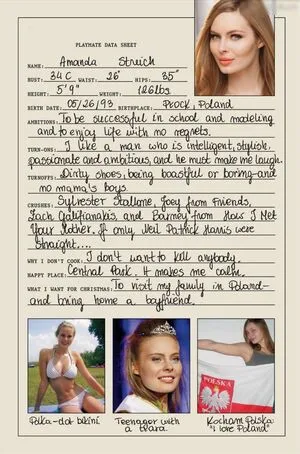 PLAYMATE DATA SHEET
NAME: Amanda Streich
BUST: 34 C WAIST: 26" HIPS: 35"
HEIGHT: 5'9" WEIGHT: 126lbs
BIRTH DATE: 05/26/93 BIRTHPLACE: Płock, Poland
AMBITIONS: To be successful in school and modeling
and to enjoy life with no regrets.
TURN-ONS: I like a man who is intelligent, stylish,
passionate and ambitious, and he must make me laugh.
TURNOFFS: Dirty shoes, being boastful or boring–and
no mama's boys.
CRUSHES: Sylvester Stallone, Joey from Friends,
Zach Galifianakis, and Barney from How I Met
Your Mother. If only Neil Patrick Harris were
straight....
WHY I DON'T COOK: I don't want to kill anybody.
HAPPY PLACE: Central Park. It makes me calm.
WHAT I WANT FOR CHRISTMAS: To visit my family in Poland–
and bring home a boyfriend.
POLSKA
Polka-dot bikini
Teenager with
a tiara.
Kocham Polska
"I love Poland"